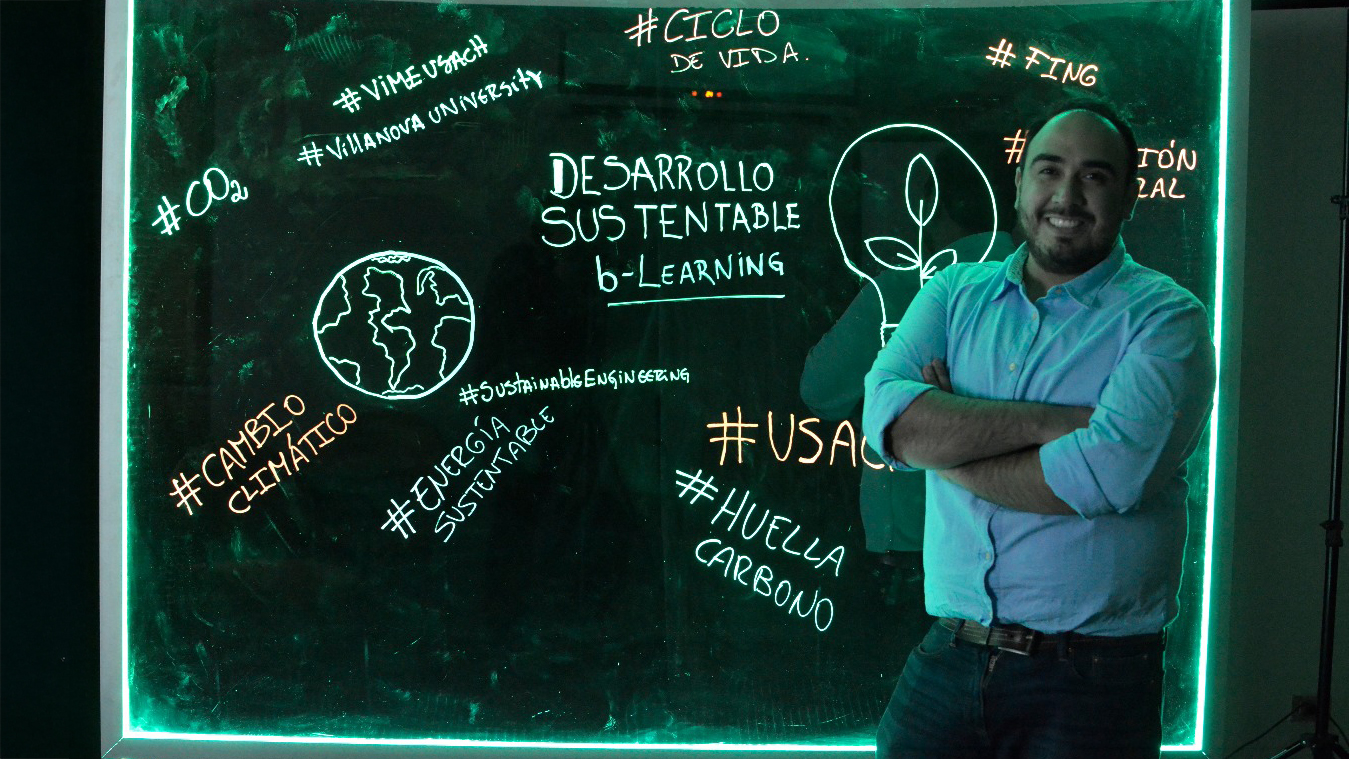 #CICLO
DE VIDA.
#VIMEUSACH
#VILLANOVA UNIVERSITY
#FING
#CO2
DESARROLLO
SUSTENTABLE
b-LEARNING
#SUSTAINABLEENGINEERING
#CAMBIO
CLIMÁTICO
#ENERGÍA
SUSTENTABLE
#USAC
#HUELLA
CARBONO